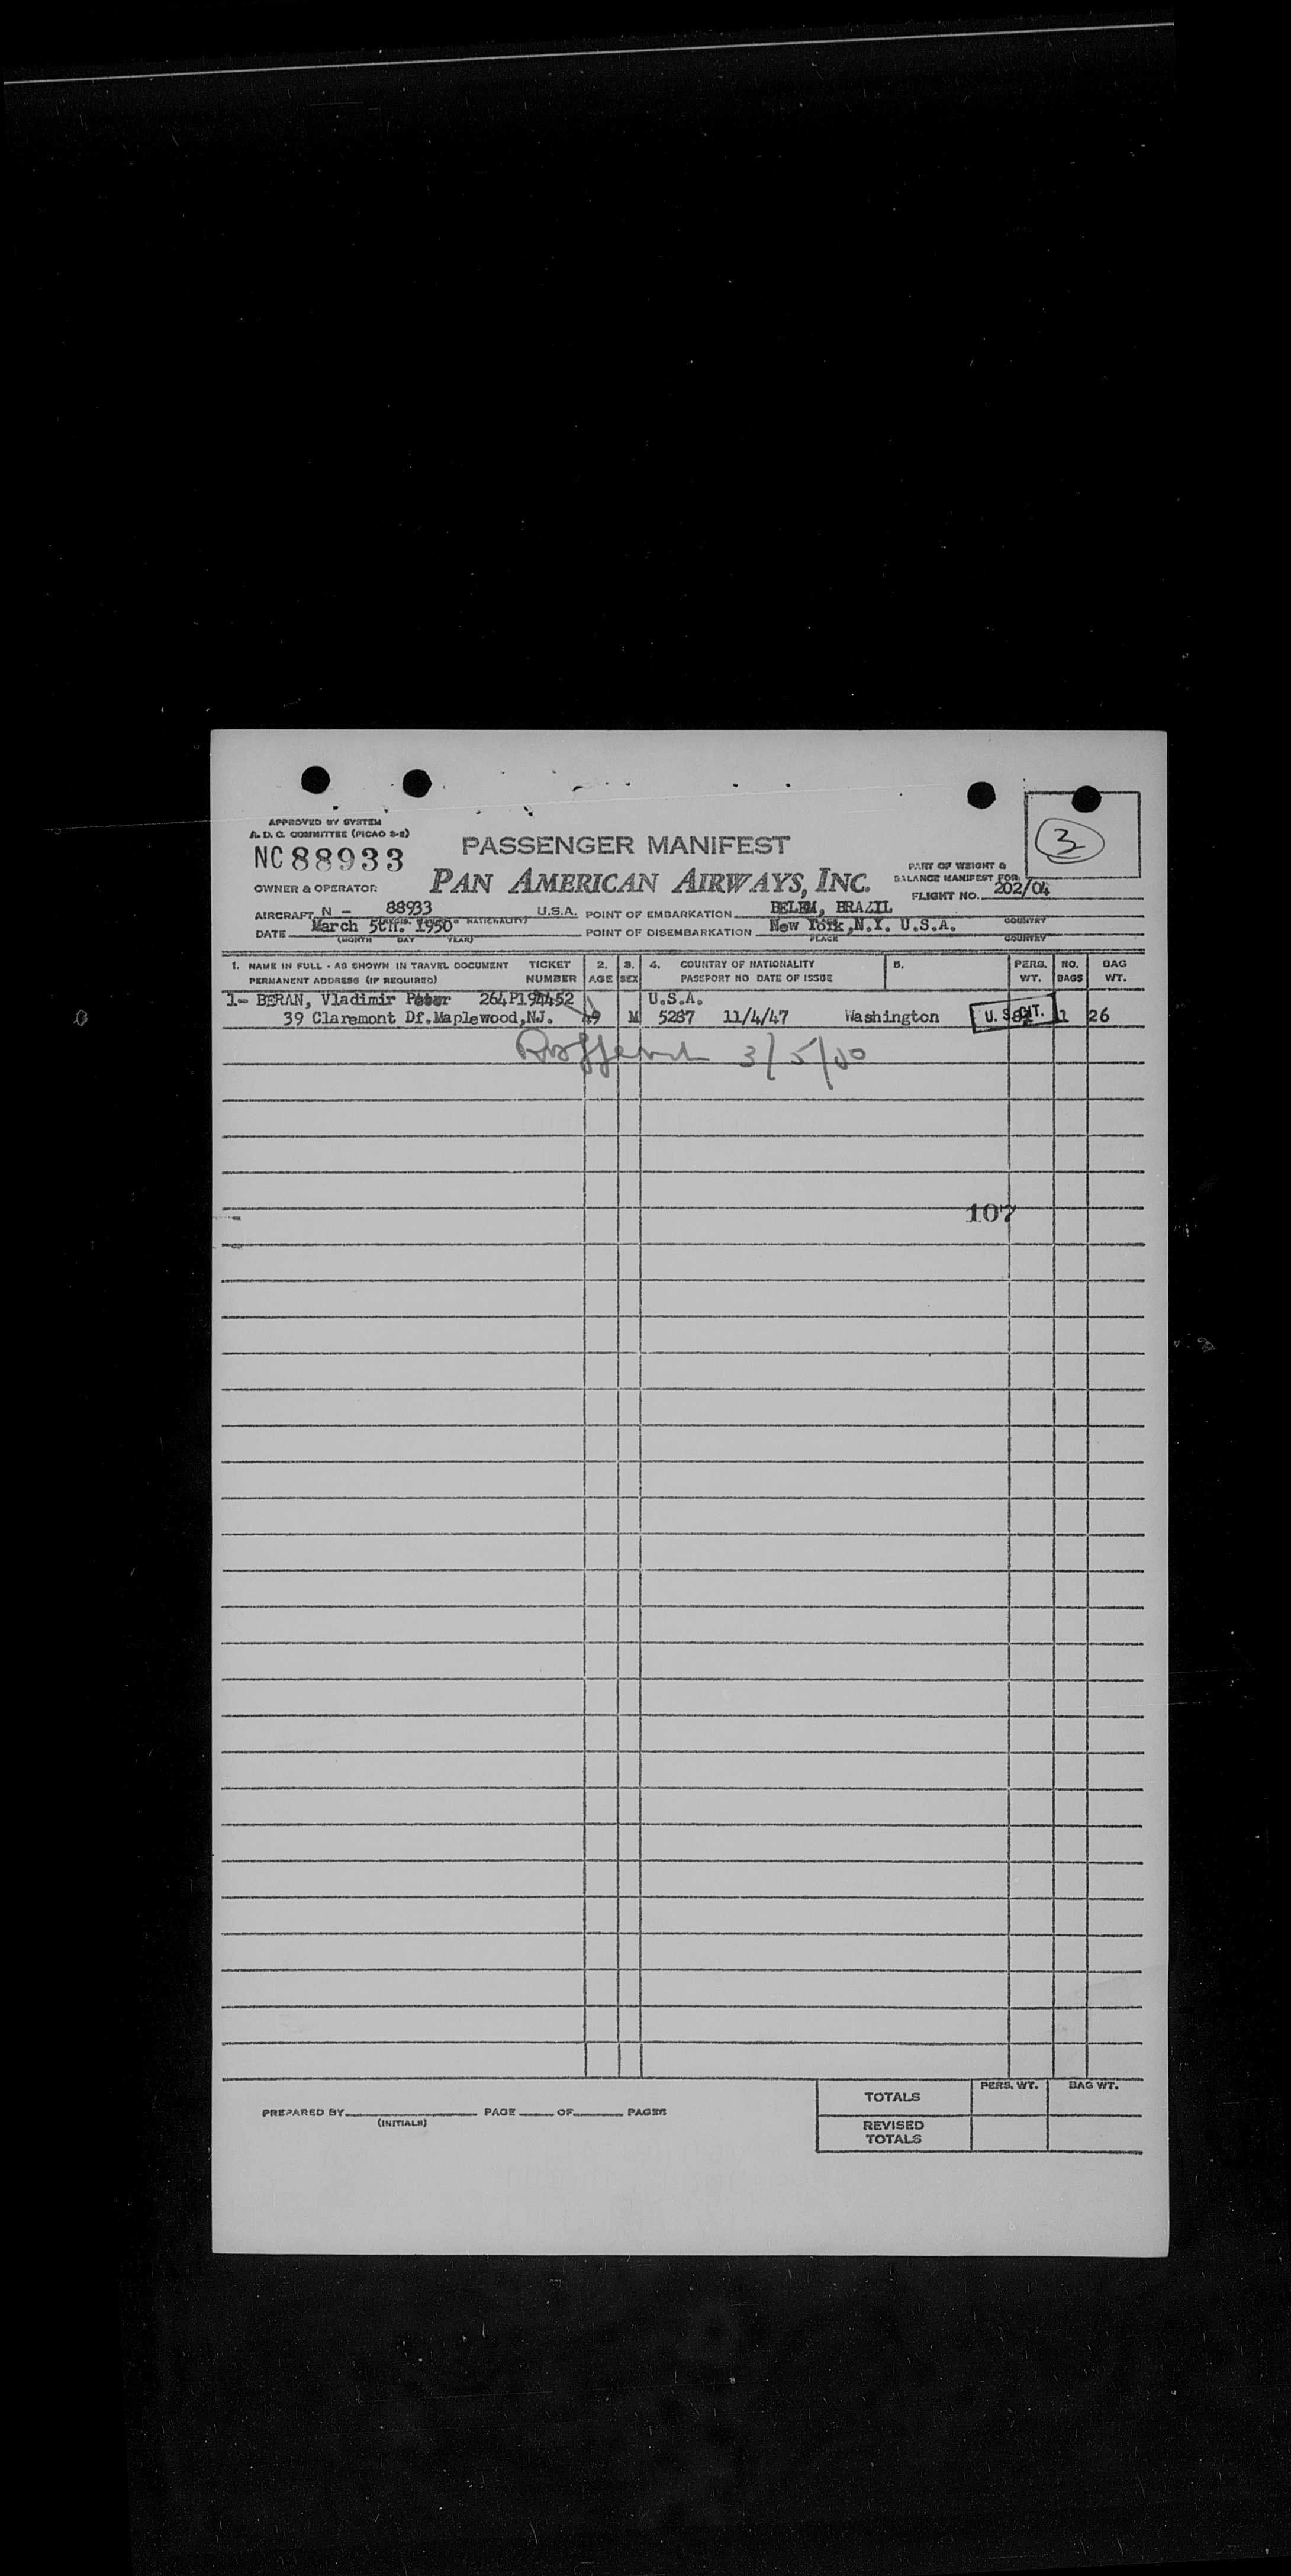 APPROVED BY SYSTEM
A. D. C. COMMITTEE (PICAO S-2)
3
NC 88933
PASSENGER MANIFEST
PAN AMERICAN AIRWAYS, INC.
PART OF WEIGHT &
BALANCE MANIFEST FOR
OWNER & OPERATOR
FLIGHT NO. 202/04
AIRCRAFT N - 88933 U.S.A. POINT OF EMBARKATION BELEM, BRAZIL
NATIONALITY) COUNTRY
DATE March 5th. 1950 POINT OF DISEMBARKATION New York,N.Y. U.S.A.
(MONTH DAY YEAR) PLACE COUNTRY
1. NAME IN FULL - AS SHOWN IN TRAVEL DOCUMENT TICKET 2. 3. 4. COUNTRY OF NATIONALITY 5. PERS. NO. BAG
PERMANENT ADDRESS (IF REQUIRED) NUMBER AGE SEX PASSPORT NO DATE OF ISSUE WT. BAGS WT.
1- BERAN, Vladimir Peter 264P194452 U.S.A.
39 Claremont Df.Maplewood,NJ. 49 M 5287 11/4/47 Washington U. S. CIT. 1 26
3/5/50
107
TOTALS PERS. WT. BAG WT.
PREPARED BY (INITIALS) PAGE OF PAGES
REVISED
TOTALS